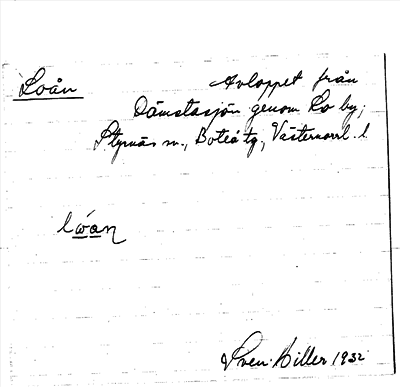 Loån
Avloppet från
Dämstasjön genom Lo by,
Styrnäs sn., Boteå tg, Västernorrl. l
lẃan
Sven Hiller 1932